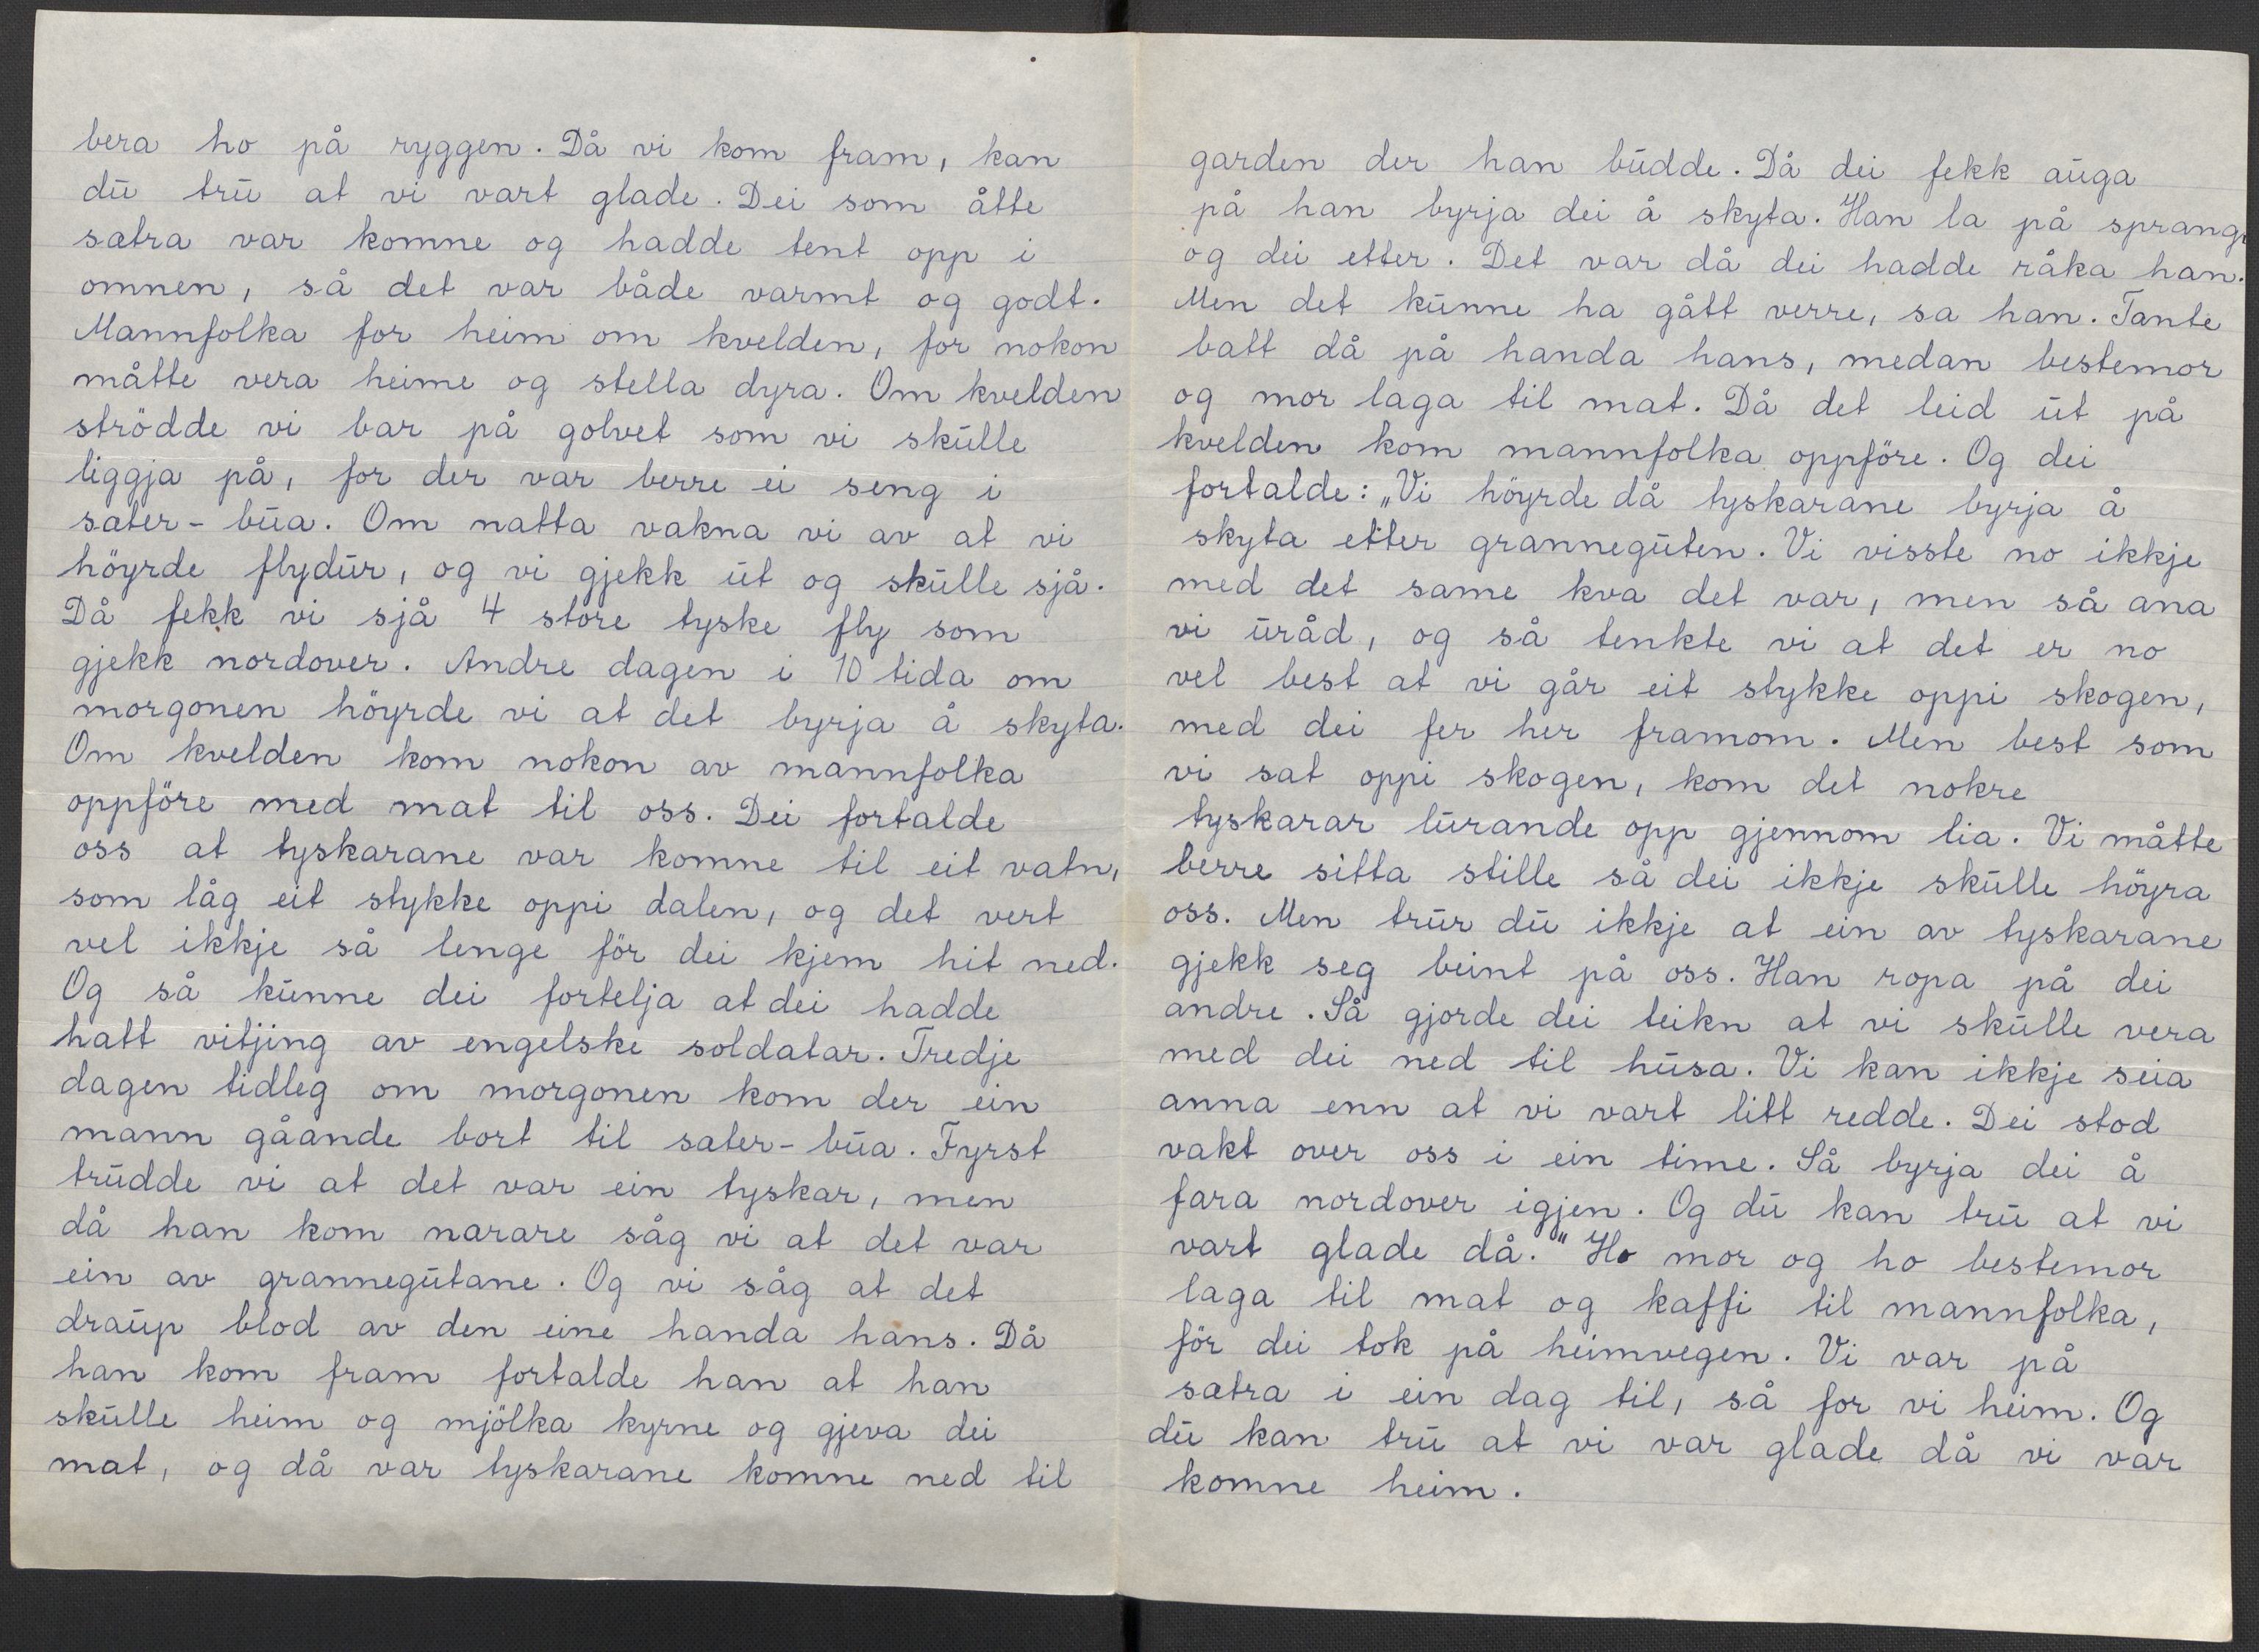 bera ho på ryggen. Då vi kom fram, kan
du tru at vi vart glade. Dei som åtte
sætra var komne og hadde tent opp i
omnen, så det var både varmt og godt.
Mannfolka for heim om kvelden, for nokon
måtte vera heime og stella dyra. Om kvelden
strödde vi bar på golvet som vi skulle
liggja på, for der var berre ei seng i
sæter-bua. Om natta vakna vi av at vi
höyrde flydur, og vi gjekk ut og skulle sjå.
Då fekk vi sjå 4 store tyske fly som
gjekk nordover. Andre dagen i 10 tida om
morgonen höyrde vi at det byrja å skyta.
Om kvelden kom nokon av mannfolka
oppföre med mat til oss. Dei fortalde
oss at tyskarane var komne til eit vatn,
som låg eit stykke oppi dalen, og det vert
vel ikkje så lenge för dei kjem hit ned.
Og så kunne dei fortelja at dei hadde
hatt vitjing av engelske soldatar. Tredje
dagen tidleg om morgonen kom der ein
mann gåande bort til sæter-bua. Fyrst
trudde vi at det var ein tyskar, men
då han kom nærare såg vi at det var
ein av grannegutane. Og vi såg at det
draup blod av den eine handa hans. Då
han kom fram fortalde han at han
skulle heim og mjölka kyrne og gjeva dei
mat, og då var tyskarane komne ned til
garden der han budde. Då dei fekk auga
på han byrja dei å skyta. Han la på sprang
og dei etter. Det var då dei hadde råka han.
Men det kunne ha gått verre, sa han. Tante
batt då på handa hans, medan bestemor
og mor laga til mat. Då det leid ut på
kvelden kom mannfolka oppföre. Og dei
fortalde: „Vi höyrde då tyskarane byrja å
skyta etter granneguten. Vi visste no ikkje
med det same kva det var, men så ana
vi uråd, og så tenkte vi at det er no
vel best at vi går eit stykke oppi skogen,
med dei fer her framom. Men best som
vi sat oppi skogen, kom det nokre
tyskarar lurande opp gjennom lia. Vi måtte
berre sitta stille så dei ikkje skulle höyra
oss. Men trur du ikkje at ein av tyskarane
gjekk seg beint på oss. Han ropa på dei
andre. Så gjorde dei teikn at vi skulle vera
med dei ned til husa. Vi kan ikkje seia
anna enn at vi vart litt redde. Dei stod
vakt over oss i ein time. Så byrja dei å
fara nordover igjen. Og du kan tru at vi
vart glade då." Ho mor og ho bestemor
laga til mat og kaffi til mannfolka,
för dei tok på heimvegen. Vi var på
sætra i ein dag til, så for vi heim. Og
du kan tru at vi var glade då vi var
komne heim.